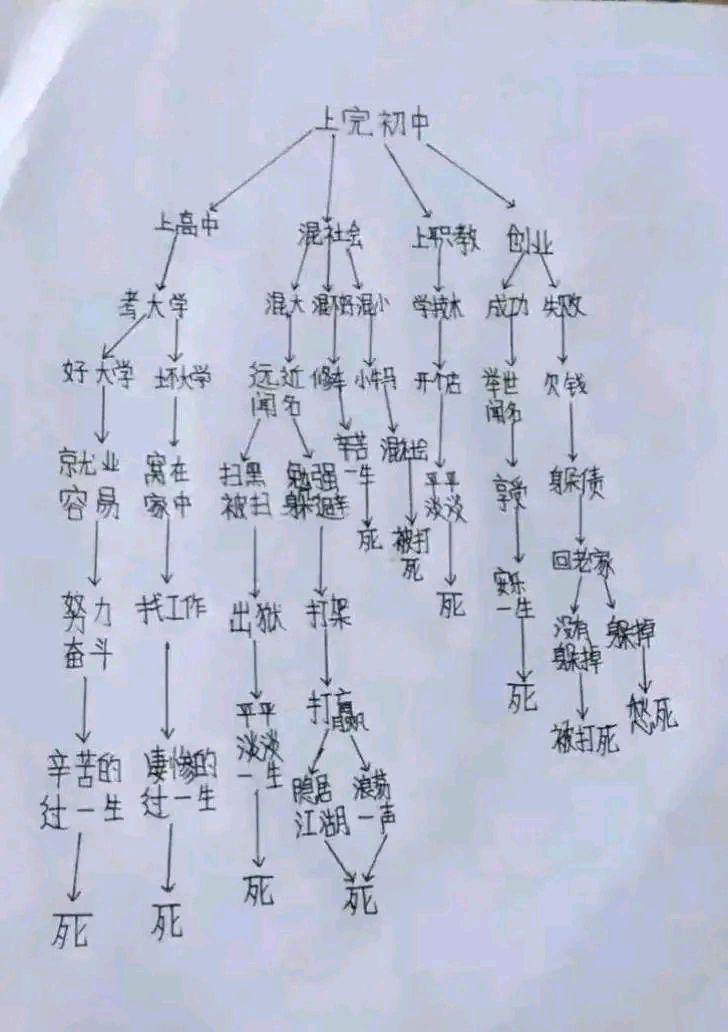 上完初中
上高中 混社会 上职教 创业
考大学 混大 混不好 混小 学技术 成功 失败
好大学 坏大学 远近 修车 小牛马 开个店 举世 欠钱
闻名 闻名
就业 窝在 扫黑 勉强 辛苦 混社会 平平 享受 躲债
容易 家中 被扫 躲避 一生 淡淡
死 被打 回老家
死
努力 找工作 出狱 打架 死 安乐 没有 躲掉
奋斗 一生 躲掉
平平 打赢 死 被打死 愁死
辛苦的 凄惨的 淡淡 隐居 浪荡
过一生 过一生 一生 江湖 一声
死 死 死 死